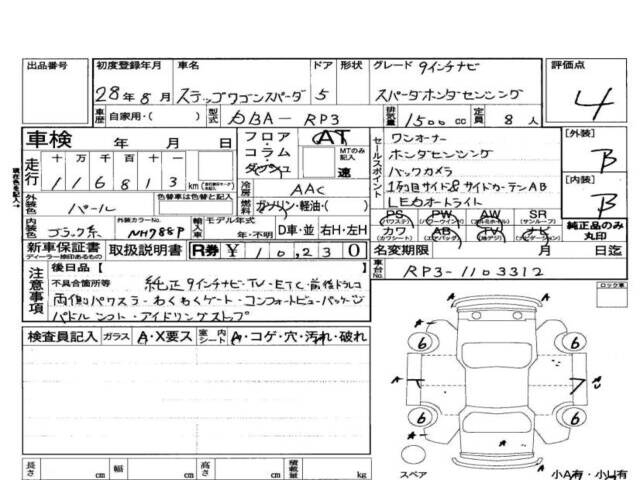 出品番号 初度登録年月 車名 ドア 形状 グレード 9インチナビ 評価点
28年8月 ステップワゴンスパーダ 5 スパーダホンダセンシング 4
車歴 自家用・( ) 型式 DBA-RP3 排気量 1500 cc 定員 8 人
車検 年 月 日 フロア・コラム・ダッシュ AT MTのみ記入 速
セールスポイント ワンオーナー
ホンダセンシング
バックカメラ
1列目サイド&サイドカーテンAB
LEDオートライト
[外装] B
[内装] B
走行 十 万 千 百 十 一
1 1 6 8 1 3 km
冷房 AAC
外装色 パール 色替車は色替と記入 燃料 ガソリン・軽油・( )
内装色 ブラック系 外装カラーNo. NH788P 輸入車 モデル年式 年・不明 D車・並 右H・左H
PS (パワステ) PW (パワーウインド) AW SR (サンルーフ)
カワ (カワシート) AB (エアバッグ) TV ナビ 純正品のみ丸印
新車保証書 ディーラー捺印あるもの 取扱説明書 R券 ¥ 10,230
名変期限 月 日迄
車台No. RP3-1103312
注意事項 後日品[ ]
不具合箇所等 純正9インチナビ・TV・ETC・前後ドラレコ
両側パワスラ・わくわくゲート・コンフォートビューパッケージ
パドルシフト・アイドリングストップ
ロック車
検査員記入 ガラス A・X要ス 室内シート A・コゲ・穴・汚れ・破れ
A
6 6
A A
U
6 6
A
スペア 小A有・小U有
長さ cm 幅 cm 高さ cm 積載量 kg
現在色を記入→